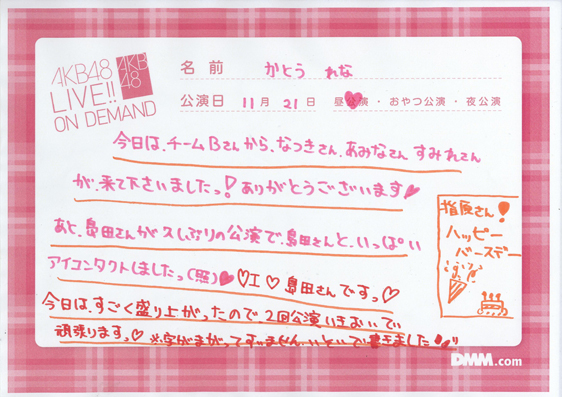 AKB48
LIVE!!
ON DEMAND
AKB
48
名前 かとう れな
公演日 11月 21日 昼公演・おやつ公演・夜公演
今日は、チームBさんから、なつきさん、あみなさん すみれさん
が、来て下さいましたっ! ありがとうございます♥
あと、島田さんが久しぶりの公演で、島田さんと、いっぱい
アイコンタクトしましたっ(照)♥ ♡I ♡ 島田さんですっ♡
今日は、すごく盛り上がったので、2回公演 いきおいで
頑張りますっ♡ ※字がまがってすいません、、いそいで書きました
指原さん!
ハッピー
バースデー
DMM.com